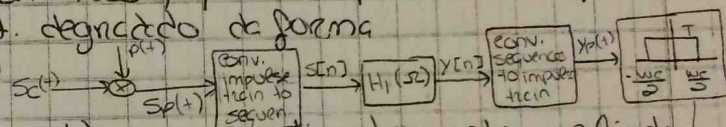 degradado da forma
p(t)
Sc(t) Sp(t)
conv.
impulse
train to
sequen.
S[n]
H₁(Ω)
Y[n]
conv.
sequence
to impulse
train
Yp(t)
T
-wc/2 wc/2